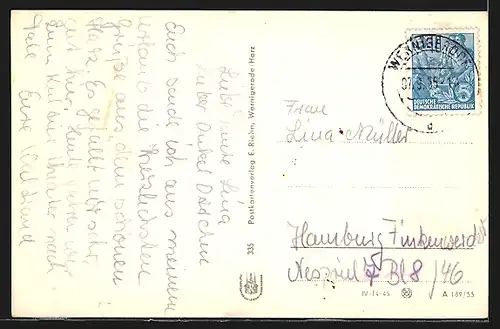 Liebe Tante Lina
Lieber Onkel
Euch sende ich aus meinem
Urlaub die herzlichsten
Grüße aus dem schönen
Harz. Es gefällt mir sehr
gut hier. Heute
zum nach
Tale Eure
335 Postkartenverlag E. Riehn, Wernigerode Harz
WERNIGERODE
DEUTSCHE
DEMOKRATISCHE REPUBLIK
Frau
Lina Müller
Hamburg Finkenwerder
Nesspriel 7 Bl 8/46
IV-14-45 A 189/55